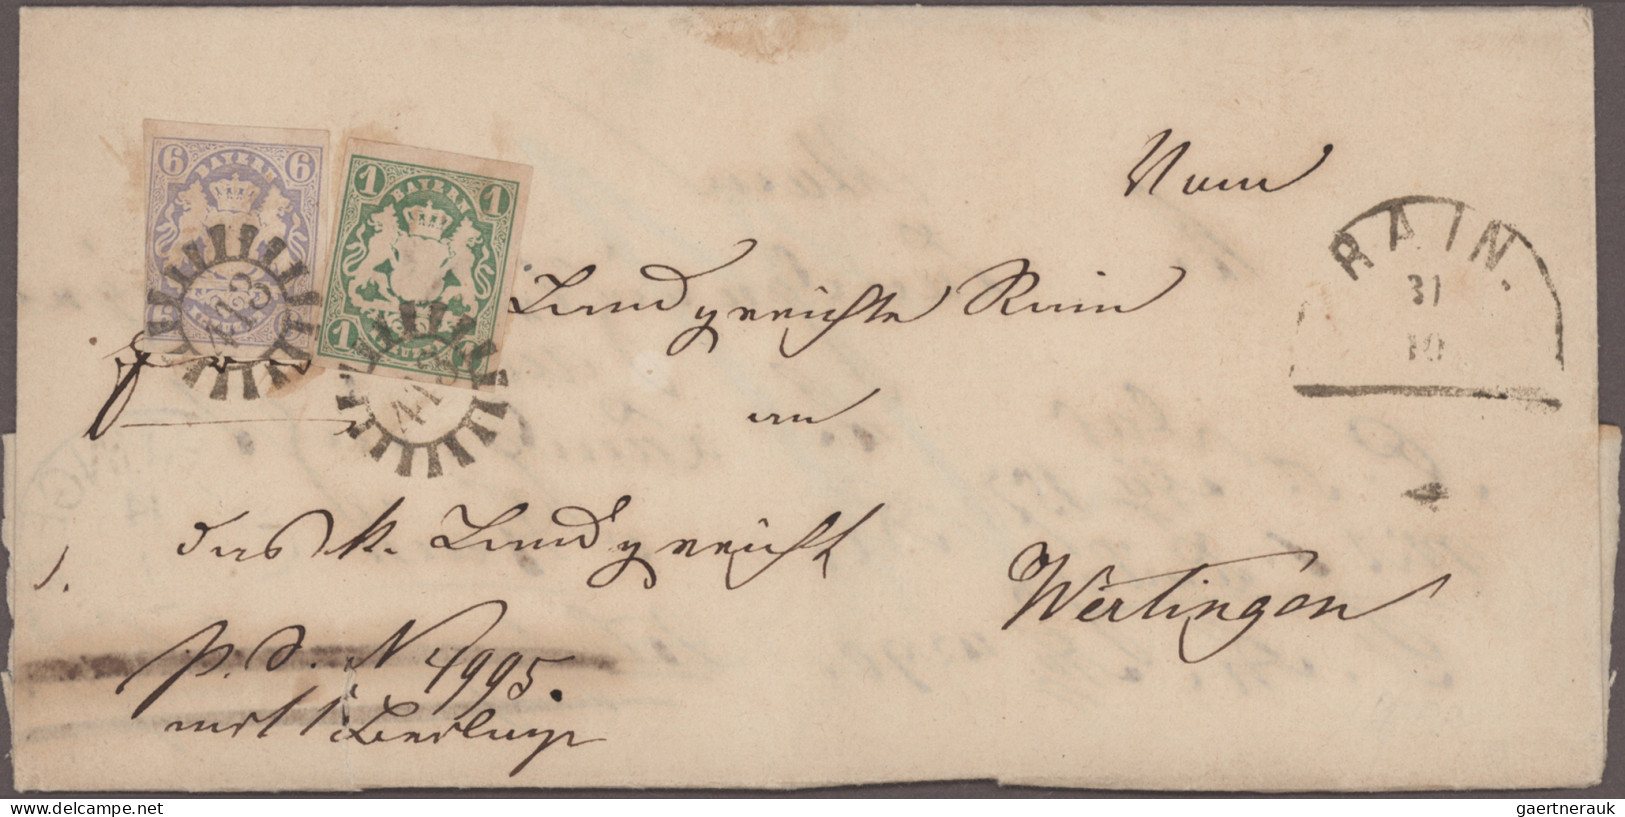 6 BAYERN 6
1 BAYERN 1
Vom
RAIN.
31
10
Landgerichte Rain
413
1
an
das k. Landgericht
Wertingen
p. d. N. 4995.
mit 1 Beilage
www.delcampe.net
gaertnerauk